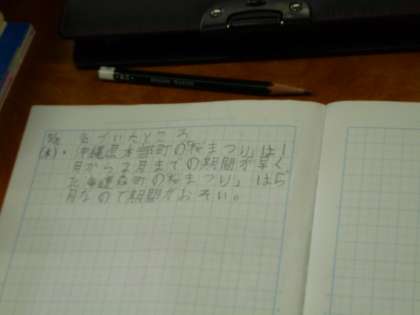 気づいたところ
(水)・沖縄県本部町の「桜まつり」は1
月から2月までの期間が早く
北海道森町の「桜まつり」は5
月なので期間がおそい。